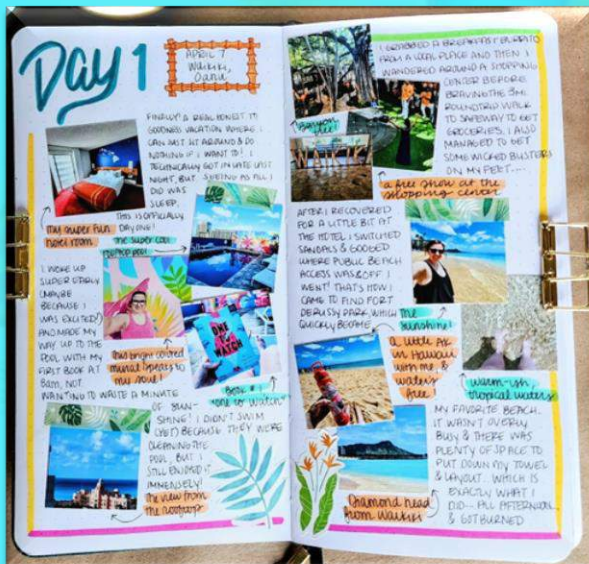 Day 1
APRIL 7
Waikiki,
Oahu
FINALLY! A REAL HONEST TO
GOODNESS VACATION WHERE I
CAN JUST SIT AROUND & DO
NOTHING IF I WANT TO! I
TECHNICALLY GOT IN LATE LAST
NIGHT, BUT SEEING AS ALL I
DID WAS
SLEEP,
THIS IS OFFICIALLY
DAY ONE!
my super fun
hotel room
the super cool
rooftop pool
I WOKE UP
SUPER EARLY
(MAYBE
BECAUSE I
WAS EXCITED?)
AND MADE MY
WAY UP TO THE
POOL WITH MY
FIRST BOOK AT
8am, NOT
WANTING TO WASTE A MINUTE
OF SUN-
SHINE! I DIDN'T SWIM
(YET) BECAUSE THEY WERE
CLEANING THE
POOL, BUT I
STILL ENJOYED IT
IMMENSELY!
this bright colored
mural speaks to
my soul!
ONE
TO
WATCH
Book #1
"one to watch"
the view from
the rooftop
I GRABBED A BREAKFAST BURRITO
FROM A LOCAL PLACE AND THEN I
WANDERED AROUND A SHOPPING
CENTER BEFORE
BRAVING THE 3mi
ROUNDTRIP WALK
TO SAFEWAY TO GET
GROCERIES. I ALSO
MANAGED TO GET
SOME WICKED BLISTERS
ON MY FEET....
Banyan
tree!
a free show at the
shopping center
AFTER I RECOVERED
FOR A LITTLE BIT AT
THE HOTEL I SWITCHED
SANDALS & GOOGLED
WHERE PUBLIC BEACH
ACCESS WAS & OFF I
WENT! THAT'S HOW I
CAME TO FIND FORT
DERUSSY PARK, WHICH
QUICKLY BECAME
the
sunshine!
in Hawaii
with me, &
warm-ish,
tropical waters
MY FAVORITE BEACH.
IT WASN'T OVERLY
BUSY & THERE WAS
PLENTY OF SPACE TO
PUT DOWN MY TOWEL
& LAYOUT. WHICH IS
EXACTLY WHAT I
DID... ALL AFTERNOON
& GOT BURNED
Diamond head
from Waikiki